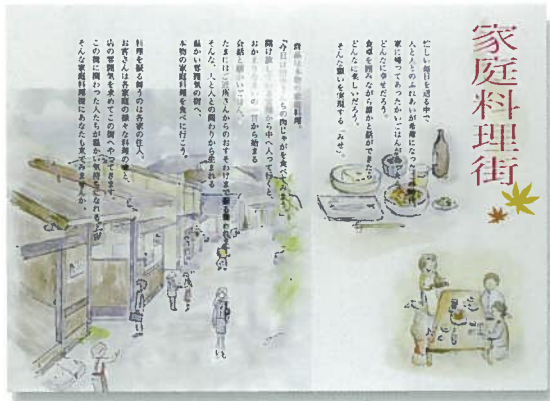 家庭料理街
忙しい毎日を送る中で、
人と人とのふれあいが希薄になった
家に帰ってあったかいごはんがあっ
どんなに幸せだろう。
食卓を囲みながら誰かと話ができたら
どんなに楽しいだろう。
そんな願いを実現する「みせ」。
本物の家庭料理。
「今日は のうちの肉じゃがを食べてみよう」
から中へ入って行くと、
おかあさん の一言から始まる
会話と
たまにはご近所さんからのおすそわけまで
そんな、人と人との関わりから生まれる
温かい雰囲気の街へ、
本物の家庭料理を食べに行こう。
料理を振る舞うのは各家の住人。
お客さんは各家庭の様々な料理の味と、
店の雰囲気を求めてこの街へやってきます。
この街に関わった人たちが温かい気持ちになれる
そんな家庭料理街にあなたも来てみませんか。